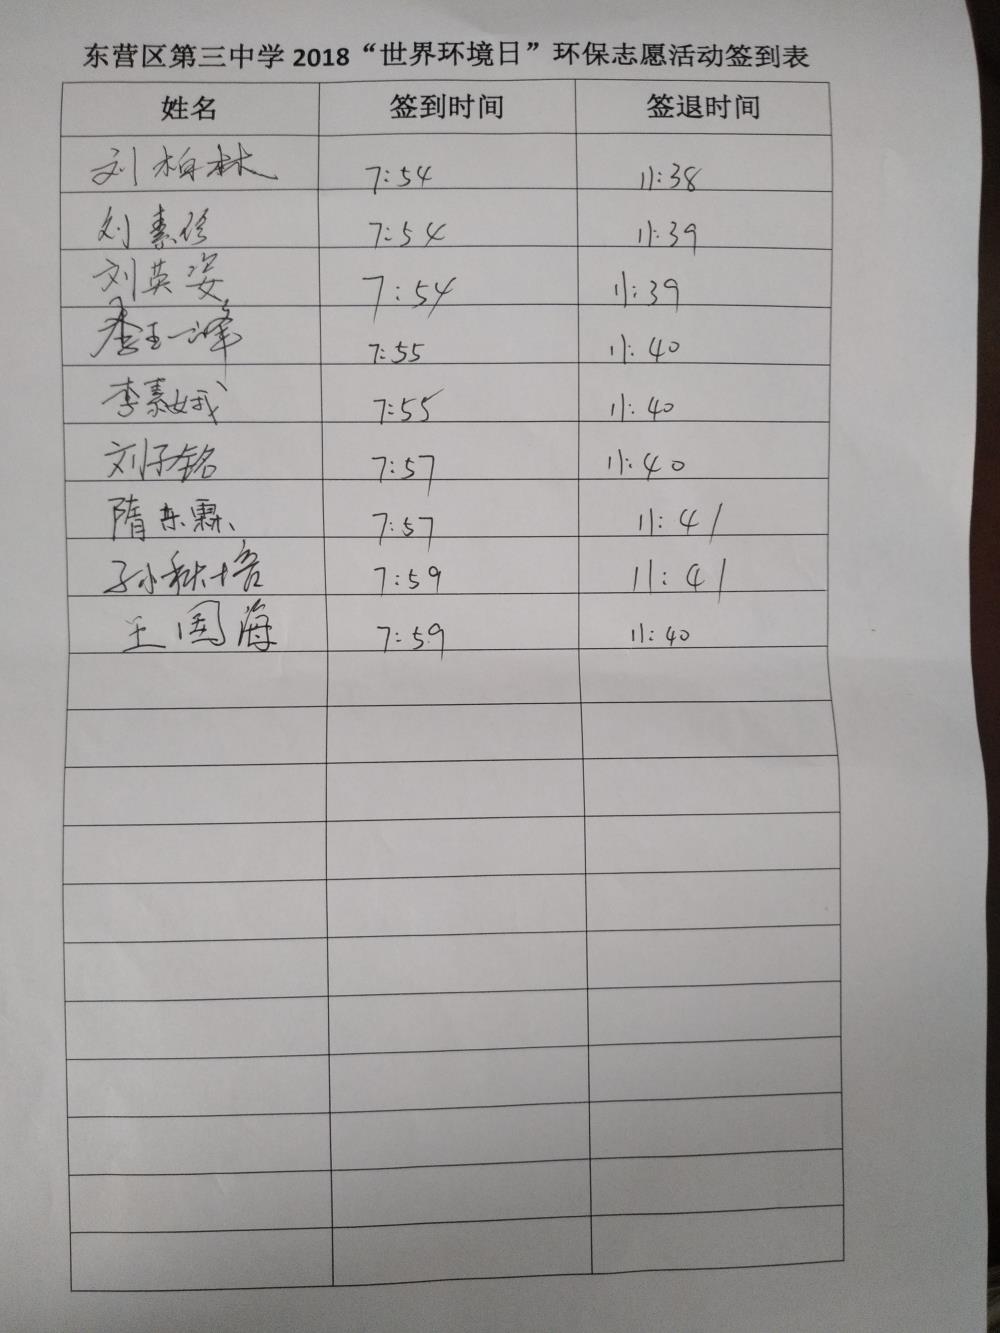 东营区第三中学2018“世界环境日”环保志愿活动签到表
姓名 签到时间 签退时间
刘柏林 7:54 11:38
刘素珍 7:54 11:39
刘英姿 7:54 11:39
王一峰 7:55 11:40
李素娥 7:55 11:40
刘子铭 7:57 11:40
隋东霖 7:57 11:41
孙秋培 7:59 11:41
王国海 7:59 11:40